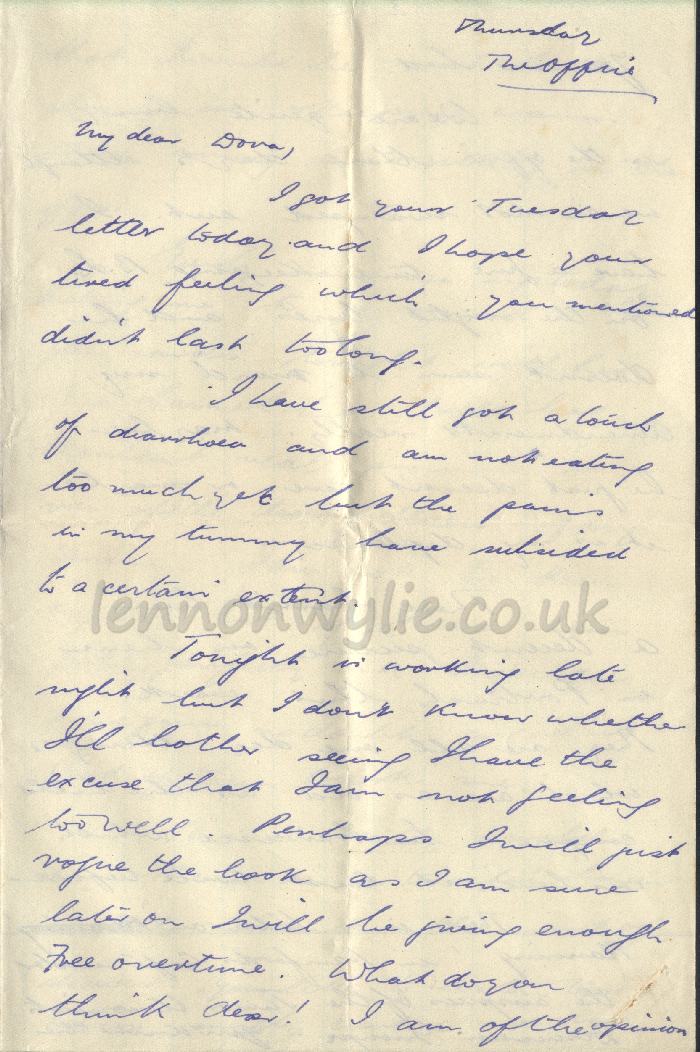 Thursday
The Office
My dear Dora,
I got your Tuesday
letter today and I hope your
tired feeling which you mentioned
didn't last too long.
I have still got a touch
of diarrhoea and am not eating
too much yet but the pains
in my tummy have subsided
to a certain extent.
lennonwylie.co.uk
Tonight is working late
night but I don't know whether
I'll bother seeing I have the
excuse that I am not feeling
too well. Perhaps I will just
the book as I am sure
later on I will be giving enough
Free overtime. What do you
think dear! I am of the opinion